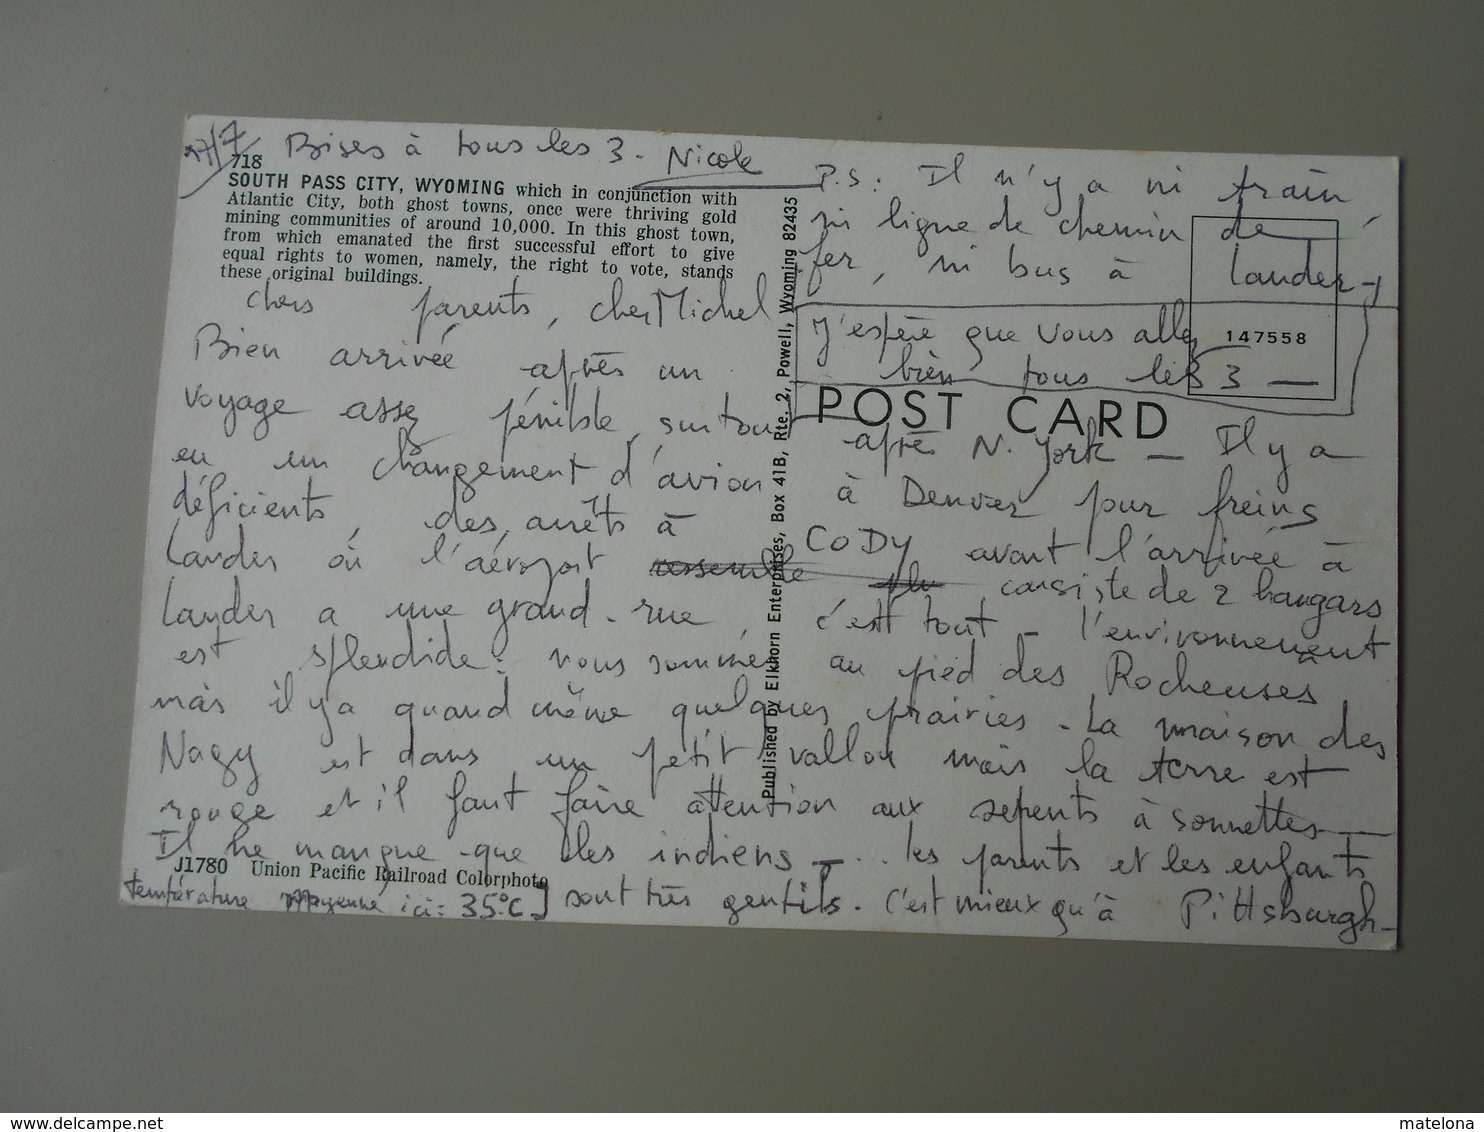 27/7 Bises à tous les 3 - Nicole
718
SOUTH PASS CITY, WYOMING which in conjunction with
Atlantic City, both ghost towns, once were thriving gold
mining communities of around 10,000. In this ghost town,
from which emanated the first successful effort to give
equal rights to women, namely, the right to vote, stands
these original buildings.
P.S: Il n'y a ni train,
ni ligne de chemin de
fer, ni bus à Lander -
J'espère que vous allez
bien tous les 3 —
147558
POST CARD
Published by Elkhorn Enterprises, Box 41B, Rte. 2, Powell, Wyoming 82435
Chers parents, cher Michel
Bien arrivée après un
voyage assez pénible, surtout après N. York — Il y a
eu un changement d'avion à Denver pour freins
déficients, des arrêts à CODY avant l'arrivée à
Lander où l'aéroport consiste de 2 hangars
Lander a une grand-rue, c'est tout - l'environnement
est splendide : nous sommes au pied des Rocheuses
mais il y a quand même quelques prairies - La maison des
Nagy est dans un petit vallon mais la terre est
rouge et il faut faire attention aux serpents à sonnettes —
Il ne manque que les indiens - ... les parents et les enfants
J1780 Union Pacific Railroad Colorphoto
sont très gentils. C'est mieux qu'à Pittsburgh -
température moyenne ici : 35°C
www.delcampe.net
matelona